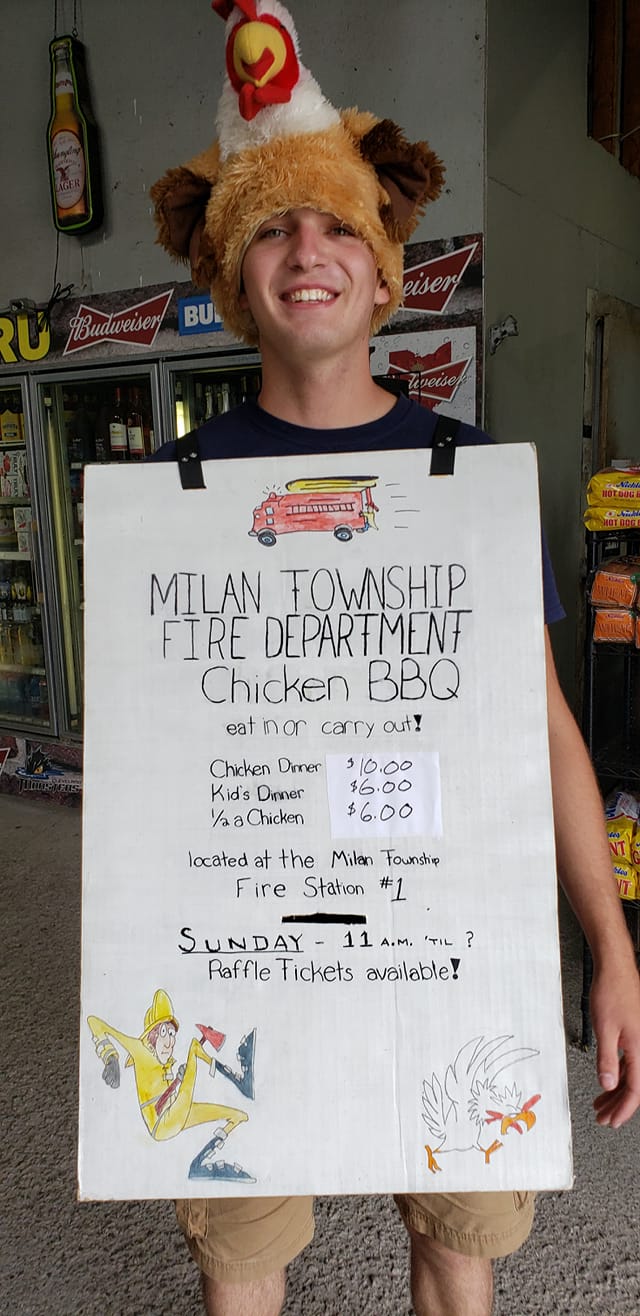 Yuengling
LAGER
RU
Budweiser
BU
eiser
dweiser
Nickles
HOT DOG
Nickles
HOT DOG
MILAN TOWNSHIP
FIRE DEPARTMENT
Chicken BBQ
eat in or carry out!
Chicken Dinner $10.00
Kid's Dinner $6.00
1/2 a Chicken $6.00
located at the Milan Township
Fire Station #1
SUNDAY - 11 A.M. 'TIL ?
Raffle Tickets available!
NT
NT